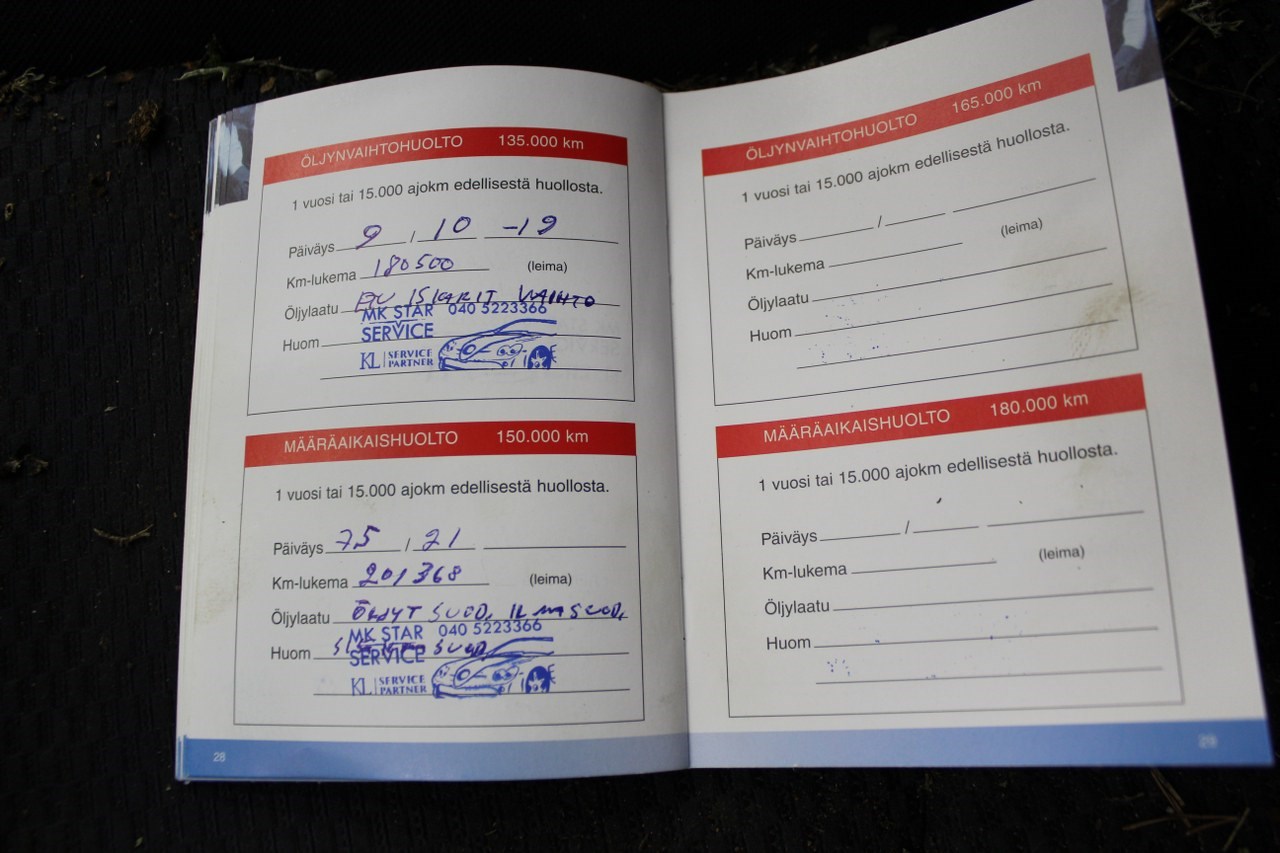 ÖLJYNVAIHTOHUOLTO 135.000 km
1 vuosi tai 15.000 ajokm edellisestä huollosta.
Päiväys 9 / 10 -19
Km-lukema 180500 (leima)
Öljylaatu ISKARIT VAIHTO
MK STAR 040 5223366
Huom SERVICE
KL SERVICE PARTNER
MÄÄRÄAIKAISHUOLTO 150.000 km
1 vuosi tai 15.000 ajokm edellisestä huollosta.
Päiväys 75 / 21
Km-lukema 201368 (leima)
Öljylaatu ÖLJYT SUOD, ILMASUOD,
MK STAR 040 5223366
Huom SUOD
SERVICE
KL SERVICE PARTNER
28
ÖLJYNVAIHTOHUOLTO 165.000 km
1 vuosi tai 15.000 ajokm edellisestä huollosta.
Päiväys /
Km-lukema (leima)
Öljylaatu
Huom
MÄÄRÄAIKAISHUOLTO 180.000 km
1 vuosi tai 15.000 ajokm edellisestä huollosta.
Päiväys /
Km-lukema (leima)
Öljylaatu
Huom
29